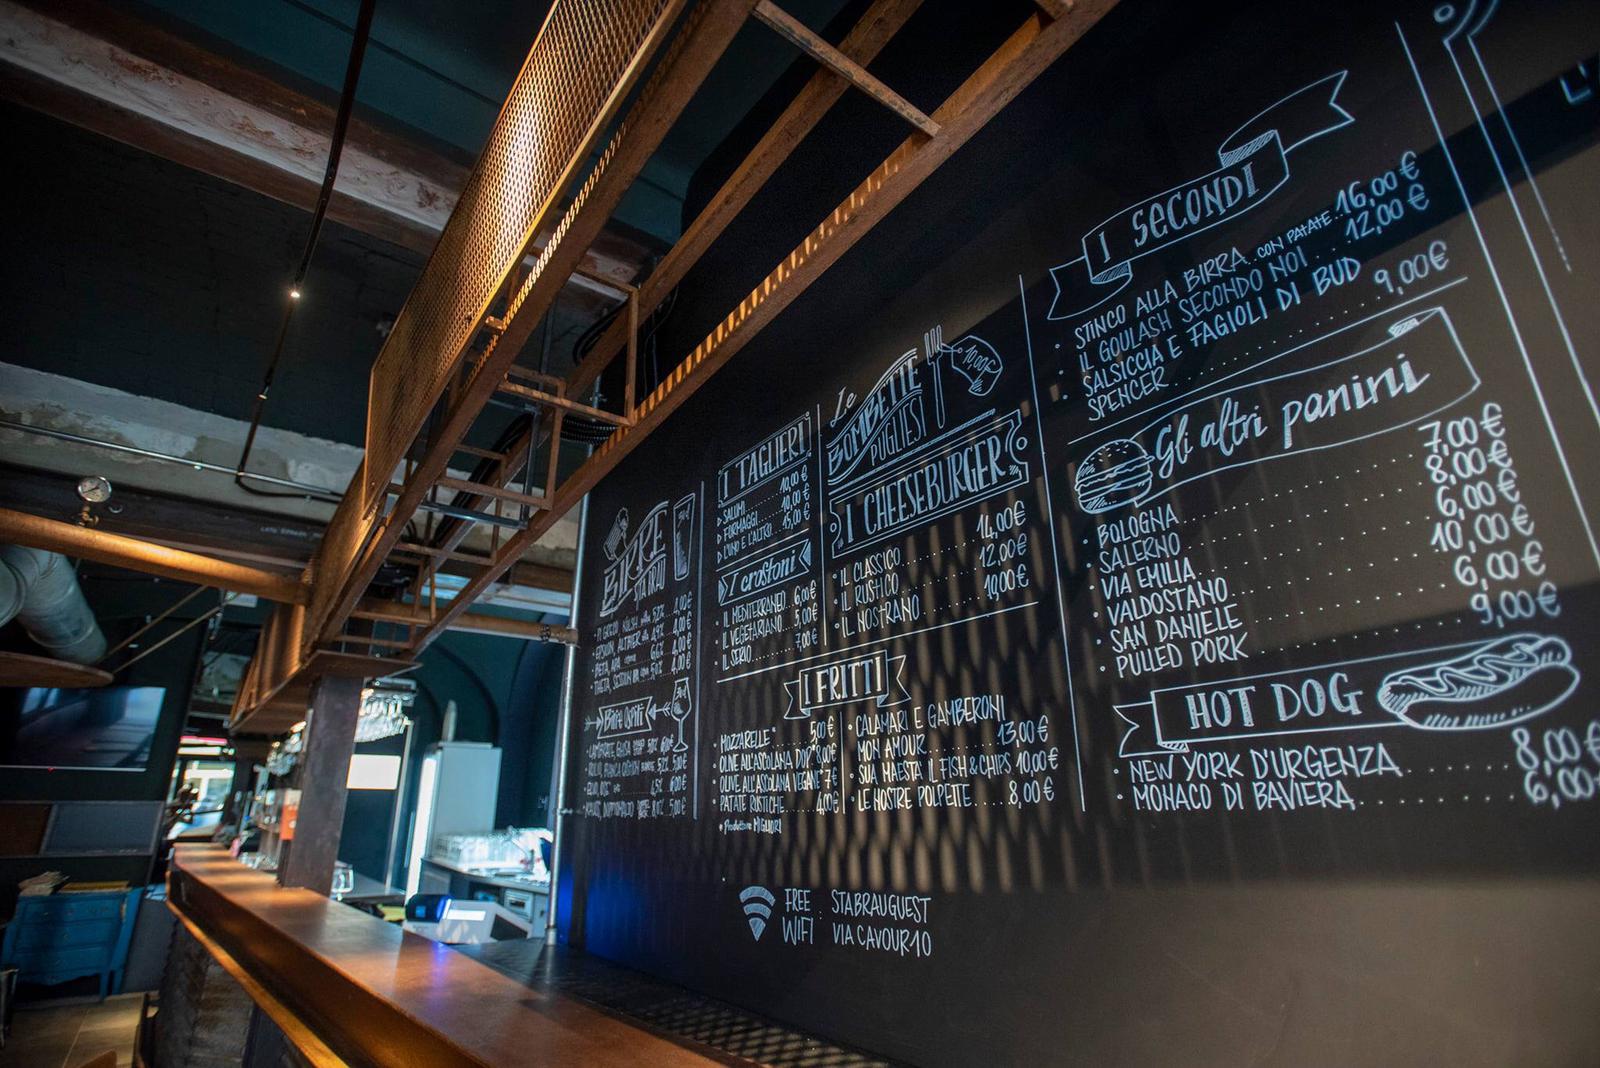 BIRRE
STA BRAU
4,00€
4,00€
4,00€
4,00€
Birre Ospiti
I TAGLIERI
SALUMI 10,00€
FORMAGGI 10,00€
L'UNO E L'ALTRO 15,00€
I crostoni
IL MEDITERRANEO 6,00€
IL VEGETARIANO 5,00€
IL SERIO 7,00€
Le BOMBETTE
PUGLIESI
10,00€
I CHEESEBURGER
IL CLASSICO 14,00€
IL RUSTICO 12,00€
IL NOSTRANO 10,00€
I FRITTI
MOZZARELLE* 5,00€
OLIVE ALL'ASCOLANA DOP* 8,00€
OLIVE ALL'ASCOLANA VEGANE* 7€
PATATE RUSTICHE 4,00€
* Produttore MIGLIORI
CALAMARI E GAMBERONI
MON AMOUR 13,00€
SUA MAESTA' IL FISH & CHIPS 10,00€
LE NOSTRE POLPETTE 8,00€
I SECONDI
STINCO ALLA BIRRA CON PATATE 16,00€
IL GOULASH SECONDO NOI 12,00€
SALSICCIA E FAGIOLI DI BUD
SPENCER 9,00€
Gli altri panini
BOLOGNA 7,00€
SALERNO 8,00€
VIA EMILIA 6,00€
VALDOSTANO 10,00€
SAN DANIELE 6,00€
PULLED PORK 9,00€
HOT DOG
NEW YORK D'URGENZA 8,00€
MONACO DI BAVIERA 6,00€
FREE WIFI
STABRAUGUEST
VIACAVOUR10